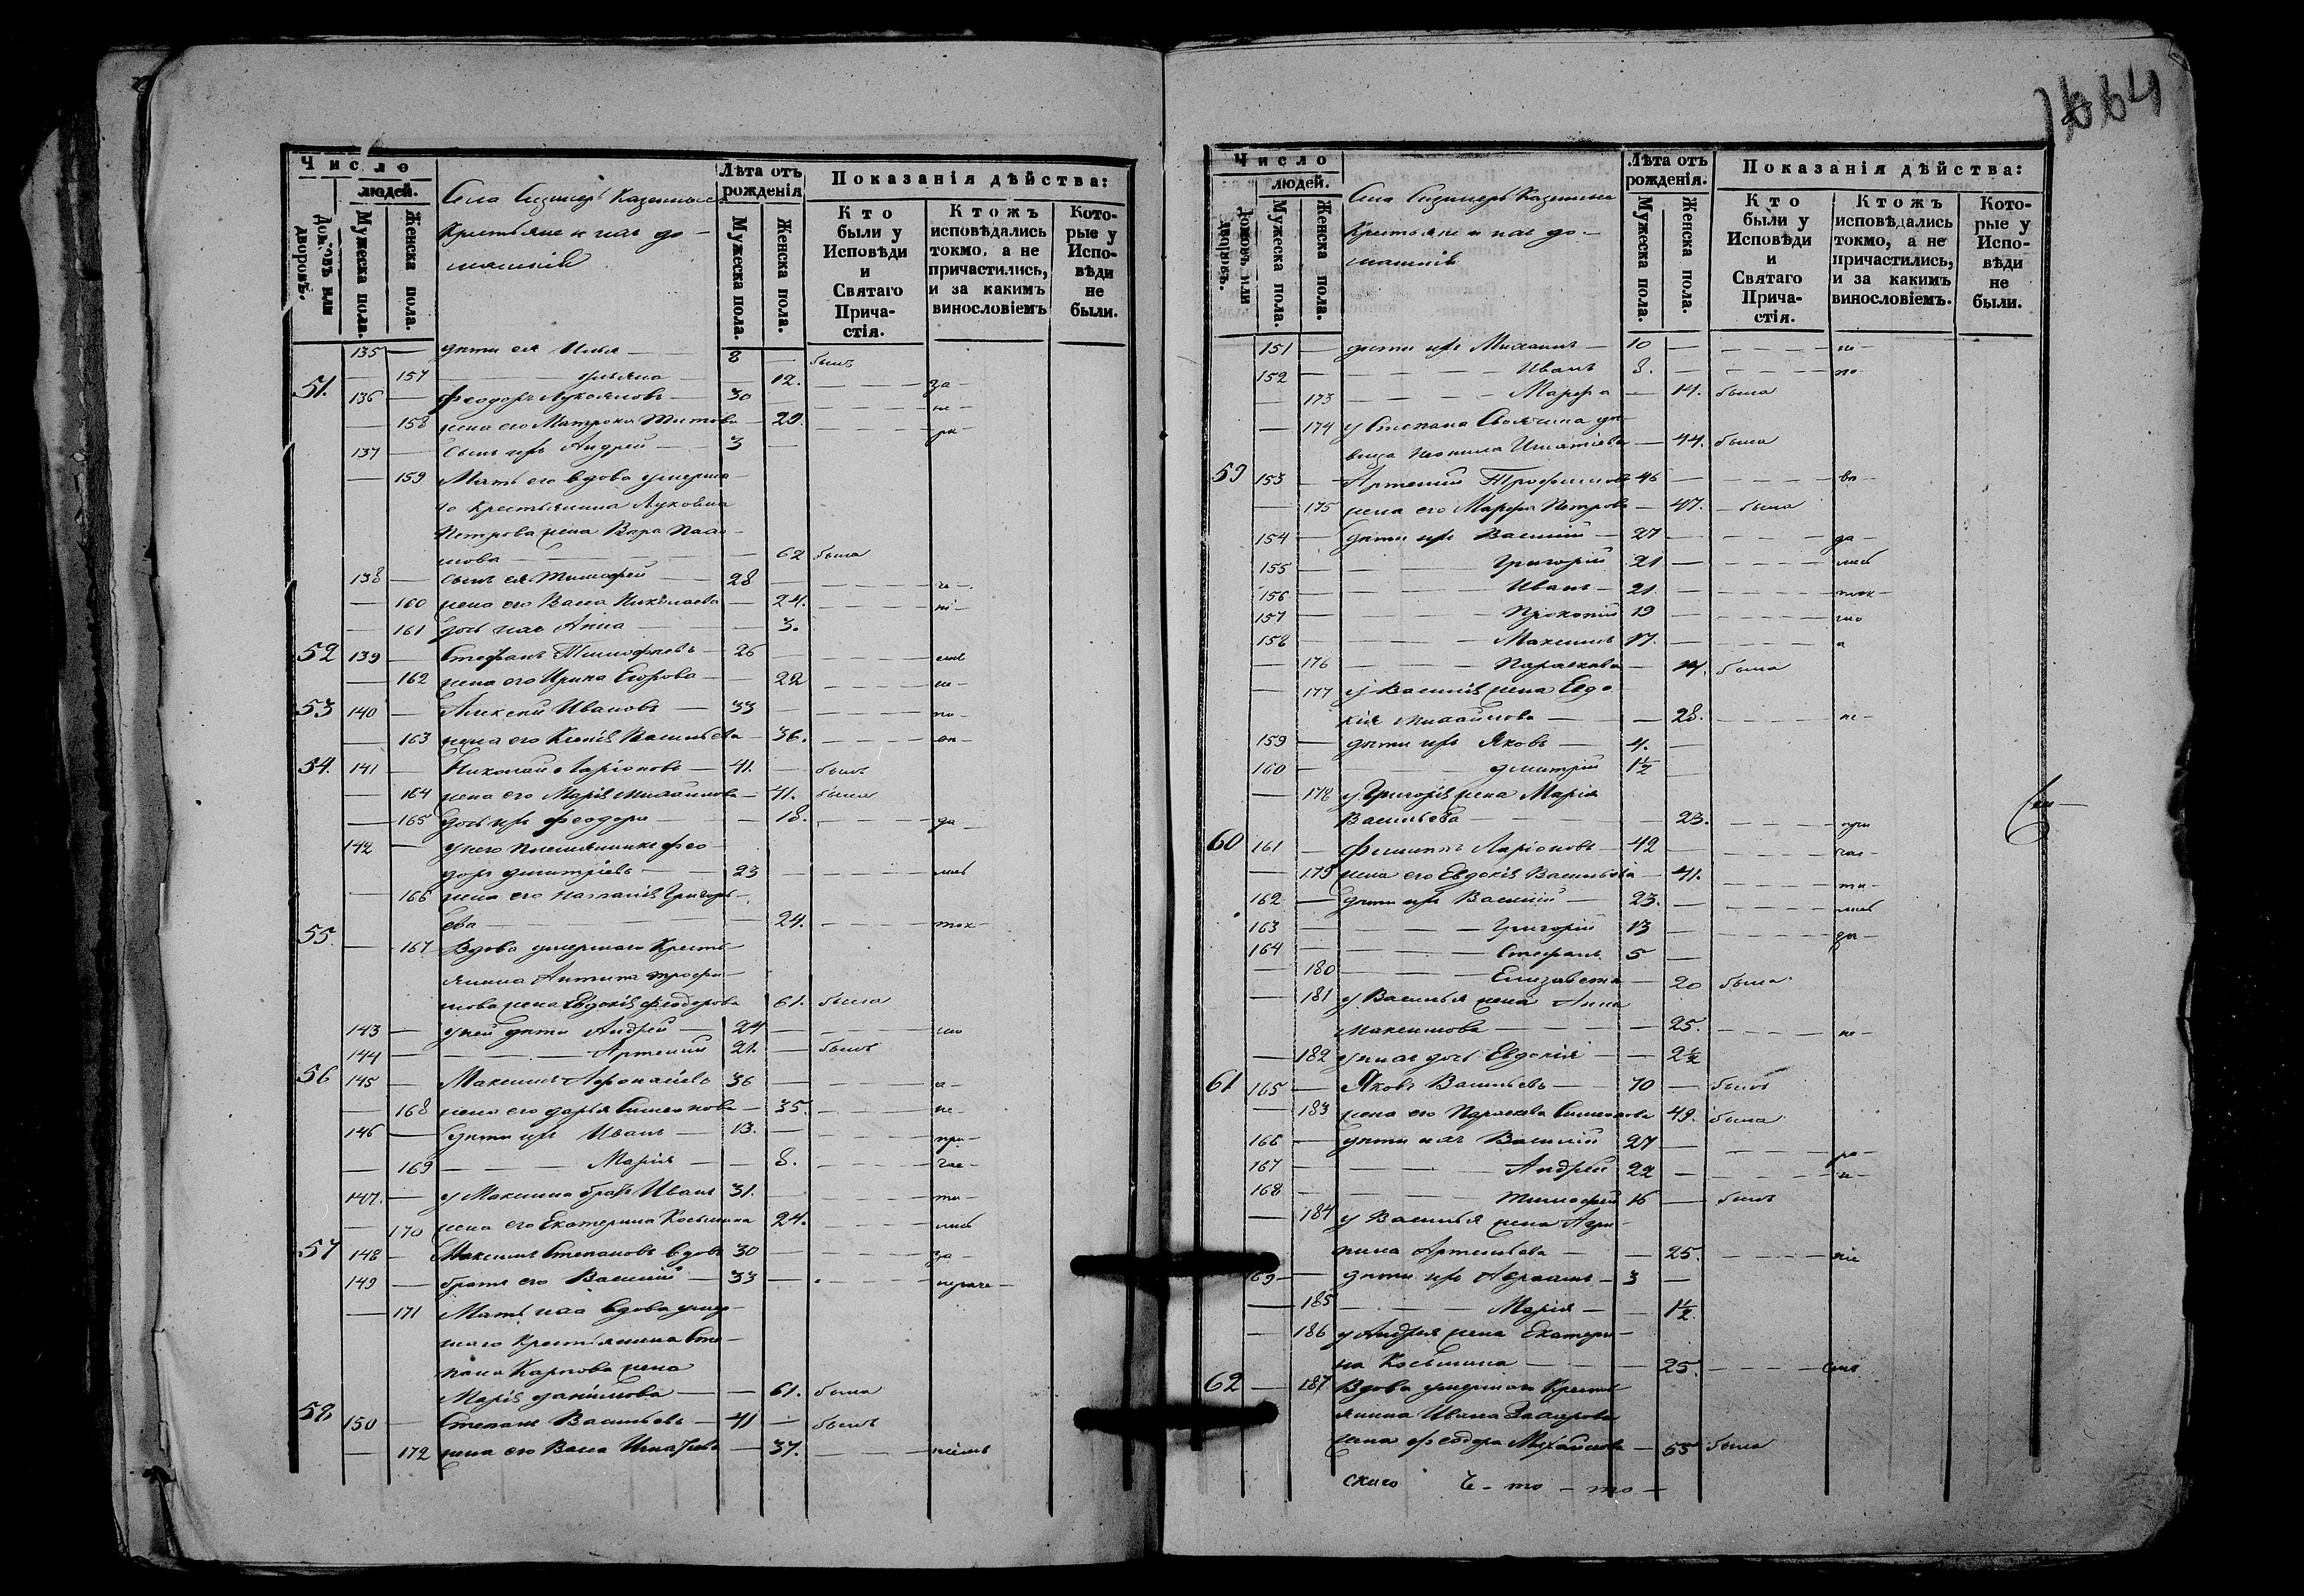 Число
людей.
Домовъ или дворовъ.
Мужеска пола.
Женска пола.
Села Сизинеръ Казенныя
Крестьяне и ихъ до-
машніе
Лѣта отъ
рожденія
Мужеска пола.
Женска пола.
Показанія дѣйства:
Кто
были у
Исповѣди
и
Святаго
Прича-
стія.
Ктожъ
исповѣдались
токмо, а не
причастились,
и за какимъ
винословіемъ
Кото-
рые у
Испо-
вѣди
не
были.
135 — дѣти ея Илья — 8 — былъ
— 157 — Ульяна — — 12. — за-
51. 136 — Феодоръ Лукояновъ — 30 — не-
— 158 жена его Матрона Титова — 29. — ра-
137 — сынъ ихъ Андрей — 3 —
— 159 Мать его вдова умерша-
го крестьянина Лукояна
Петрова жена Вѣра Пав-
лова — — 62 была
138 — сынъ ея Тимофей — 28 —
— 160 жена его Васса Николаева — 24.
— 161 дочь ихъ Анна — — 3.
52 139 — Стефанъ Тимофеевъ — 26 —
— 162 жена его Ирина Егорова — 22
53 140 — Алексѣй Ивановъ — 33 — по-
— 163 жена его Ксенія Васильева — 36.
54. 141 — Николай Ларіоновъ — 41. — былъ
— 164 жена его Марія Михайлова — 41. была
— 165 дочь ихъ Феодора — — 18.
142 — у него племянникъ Фео-
доръ Дмитріевъ — 23
— 166 жена его Наталія Григорь-
ева — — 24. — ток-
55. — 167 Вдова умершаго Кресть-
янина Антипа Трофи-
мова жена Евдокія Феодорова 61. была
143 — у ней дѣти Андрей — 24 — мо
144 — Артемій 21. — былъ
56 145 — Максимъ Афонасьевъ 36 — а-
— 168 жена его Дарья Симеонова — 35. — не-
146 — дѣти ихъ Иванъ — 13. — при-
— 169 — Марія — — 8. — час-
147. — у Максима братъ Иванъ 31. — ти-
— 170 жена его Екатерина Косьмина 24. — лись
57 148 — Максимъ Степановъ вдовъ 30 — за-
149 — братъ его Василій — 33 —
— 171 Мать ихъ вдова умер-
шаго крестьянина Сте-
пана Карпова жена
Марія Данилова — — 61. была
58 150 — Степанъ Васильевъ — 41 — былъ
— 172 жена его Васса Игнатьева — 37. — ніемъ
Число
людей.
Домовъ или дворовъ.
Мужеска пола.
Женска пола.
Села Сизинеръ Казенныя
Крестьяне и ихъ до-
машніе
Лѣта отъ
рожденія.
Мужеска пола.
Женска пола.
Показанія дѣйства:
Кто
были у
Исповѣди
и
Святаго
Прича-
стія.
Ктожъ
исповѣдались
токмо, а не
причастились,
и за какимъ
винословіемъ.
Кото-
рые у
Испо-
вѣди
не
были.
151 — дѣти ихъ Михаилъ — 10 —
152 — Иванъ 8. —
— 173 — Марфа — 14. была
— 174 у Степана Своячина дѣ-
вица Неонила Игнатіева — 44. была
59 153 — Артемій Трофимовъ 46 —
— 175 жена его Марфа Петрова — 47. — была
154 — дѣти ихъ Василій — 27 —
155 — Григорій 21 — лись
156 — Иванъ — 21. — ток-
157 — Прокопій 19 — мо
158 — Максимъ 17. — а
— 176 — Параскева — 14. была
— 177 у Василія жена Евдо-
кія Михайлова — — 28. — не-
159 — дѣти ихъ Яковъ — 4. —
160 — Дмитрій 1½ —
— 178 у Григорія жена Марія
Васильева — — 23. — при
60 161 — Филиппъ Ларіоновъ — 42 — час-
— 179 жена его Евдокія Васильева — 41. — ти-
162 — дѣти ихъ Василій — 23. — лись
163 — Григорій 13 —
164 — Стефанъ 5 —
— 180 — Елизавета — 20 была
— 181 у Василья жена Анна
Максимова — — 25.
— 182 у нихъ дочь Евдокія — — 2½
61 165 — Яковъ Васильевъ — 70 — былъ
— 183 жена его Параскева Симеонова 49. была
166 — дѣти ихъ Василій 27 —
167 — Андрей 22 —
168 — Тимофей 16 — былъ
— 184 у Василья жена Агри-
пина Артемьева — — 25.
69 — дѣти ихъ Авраамъ — 3 —
— 185 — Марія — — 1½
— 186 у Андрея жена Екатери-
на Косьмина — — 25.
62 — 187 Вдова умершаго Кресть-
янина Ивана Захарова
жена Феодора Михайлова — 55 была